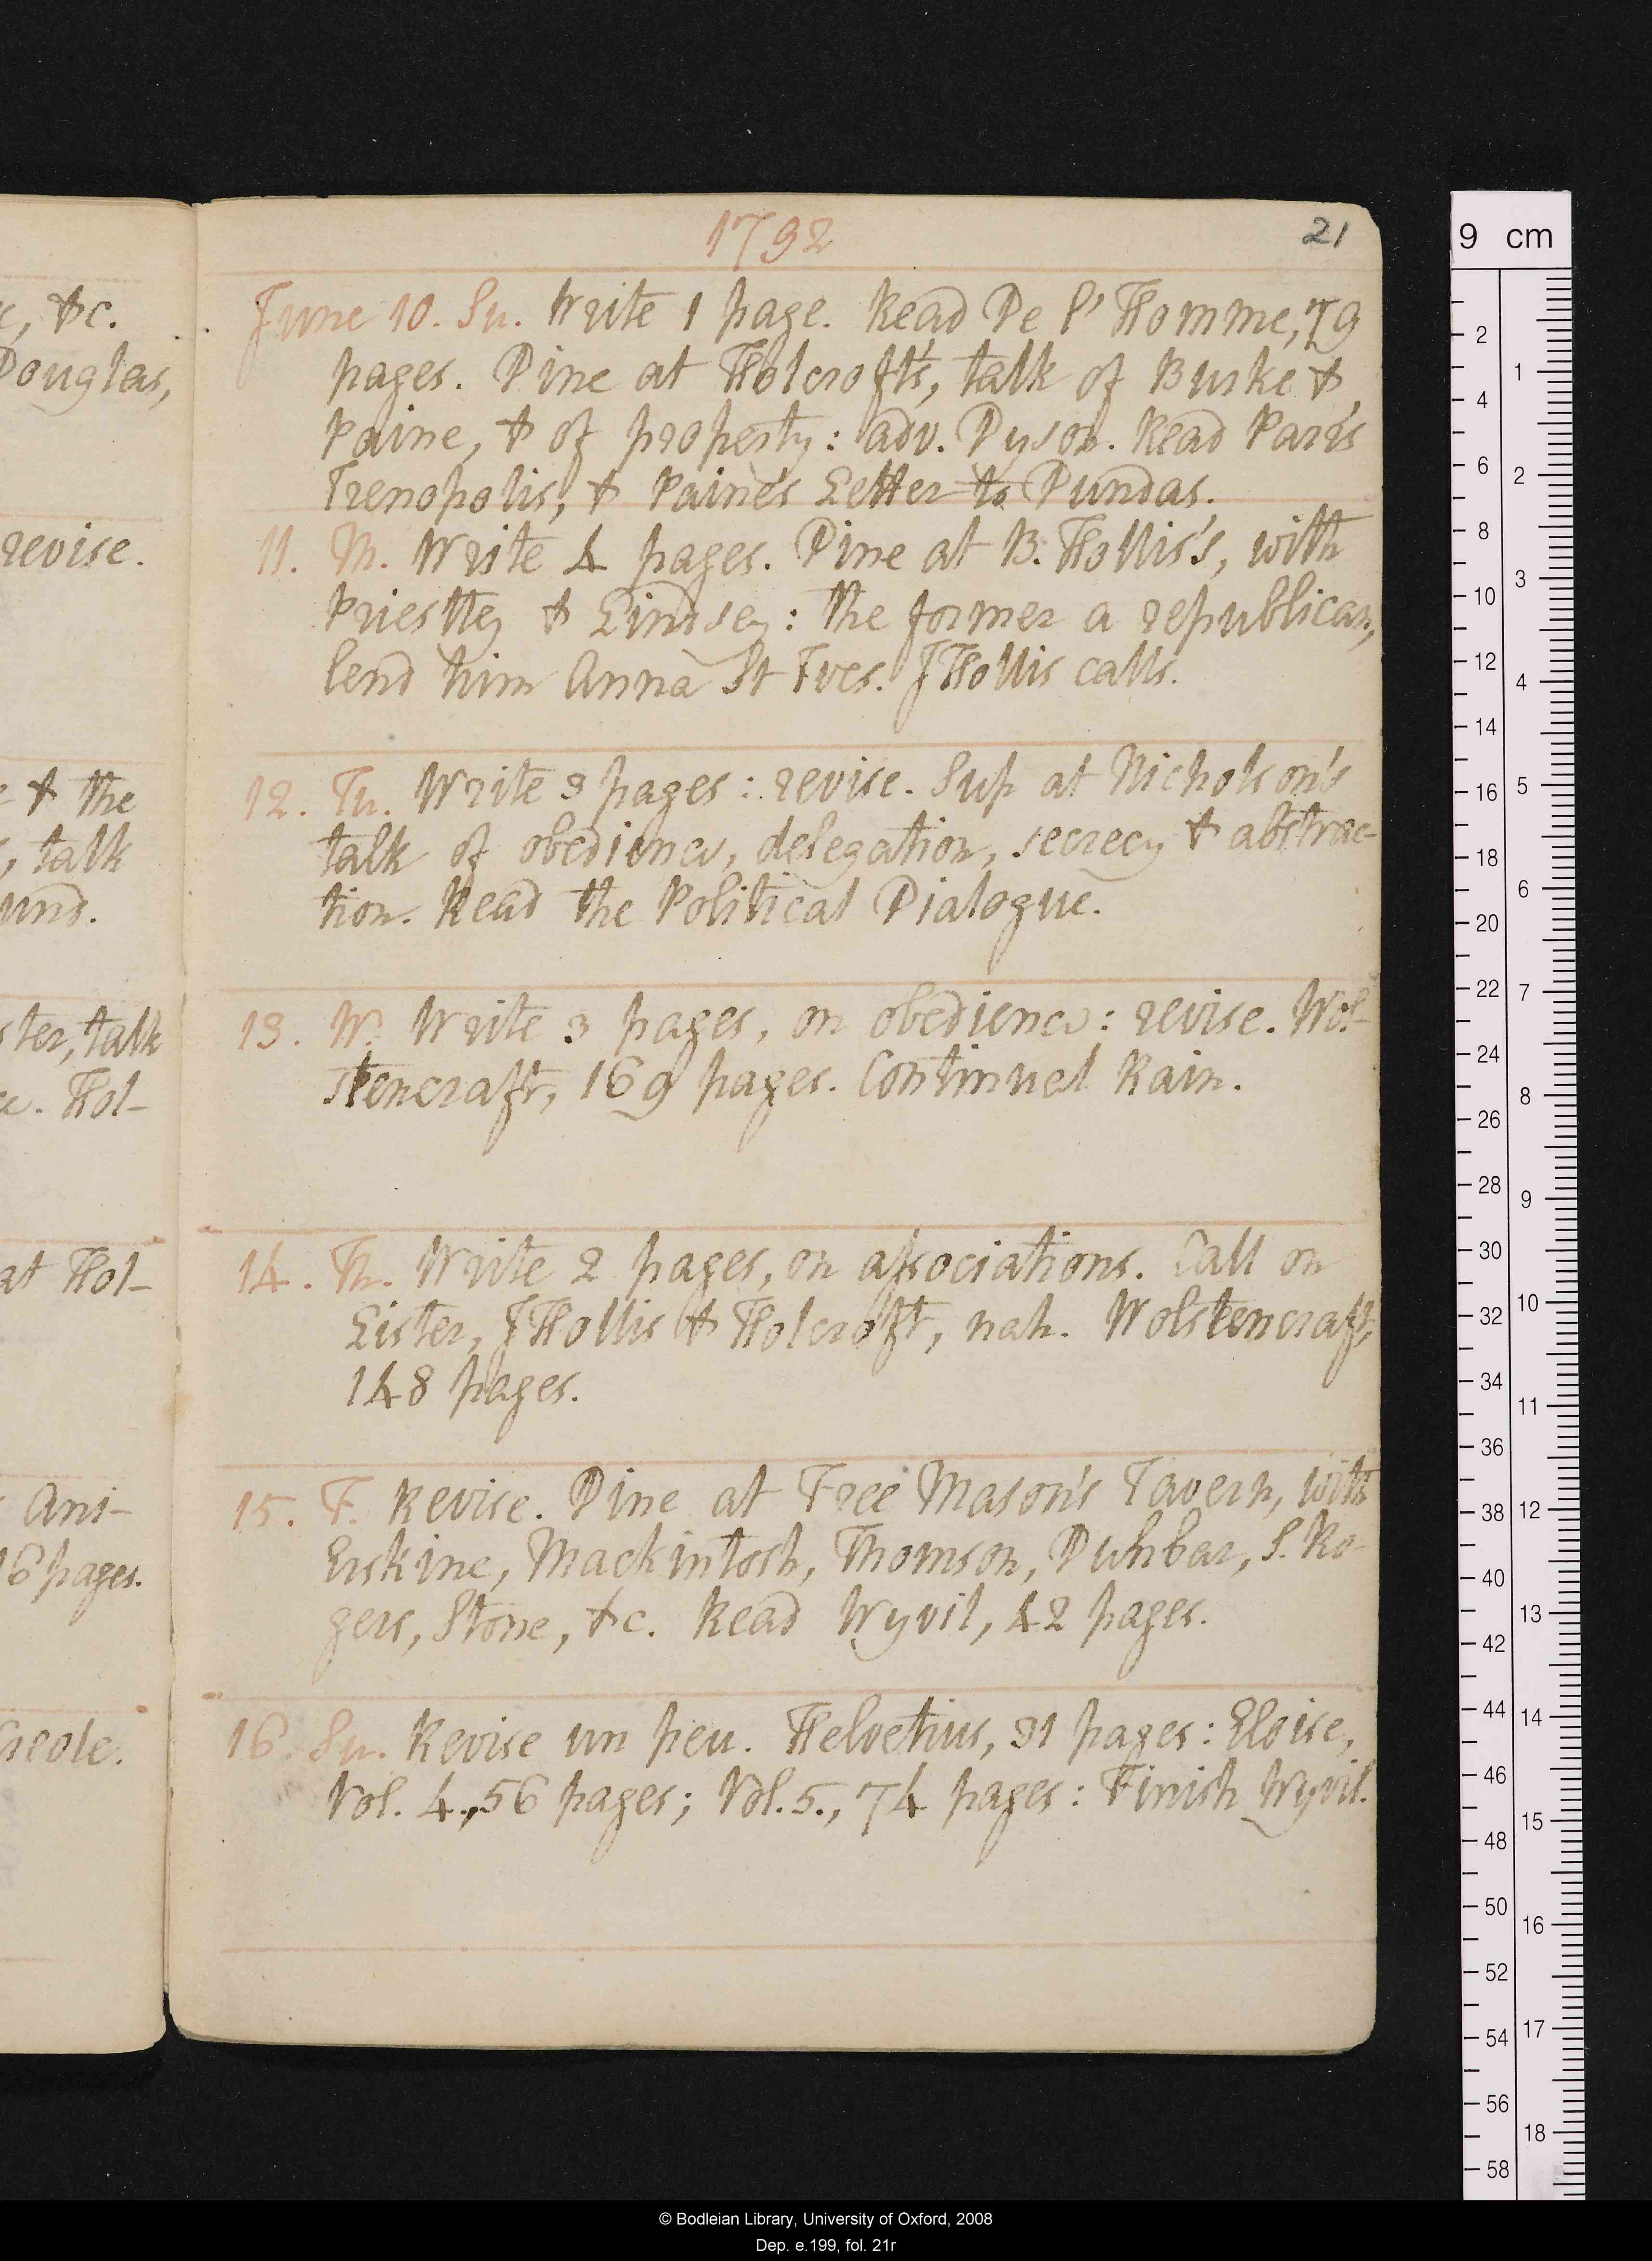 c, &c.
Douglas,
revise.
& the
, talk
und.
ster, talk
Hol-
at Hol-
Ani-
16 pages.
1792
21
June 10. Su. Write 1 page. Read De l'Homme, 79
pages. Dine at Holcroft's, talk of Burke &
Paine, & of property: adv. Dyson. Read Parr's
Irenopolis, & Paine's Letter to Dundas.
11. M. Write 4 pages. Dine at B. Hollis's, with
Priestley & Lindsey: the former a republican,
lend him Anna St Ives. J Hollis calls.
12. Tu. Write 3 pages: revise. Sup at Nicholson's
talk of obedience, delegation, secrecy & abstrac-
tion. Read the Political Dialogue.
13. W. Write 3 pages, on obedience: revise. Wol-
stencraft, 169 pages. Continued Rain.
14. Th. Write 2 pages, on associations. Call on
Lister, J Hollis & Holcroft, nah. Wolstencraft,
148 pages.
15. F. Revise. Dine at Free Mason's Tavern, with
Erskine, Mackintosh, Thomson, Dunbar, S. Ro-
gers, Stone, &c. Read Wyvil, 42 pages.
16. Su. Revise un peu. Helvetius, 31 pages: Eloise,
Vol. 4., 56 pages; Vol. 5., 74 pages: Finish Wyvil.
9 cm
2
4
6
8
10
12
14
16
18
20
22
24
26
28
30
32
34
36
38
40
42
44
46
48
50
52
54
56
58
1
2
3
4
5
6
7
8
9
10
11
12
13
14
15
16
17
18
© Bodleian Library, University of Oxford, 2008
Dep. e.199, fol. 21r